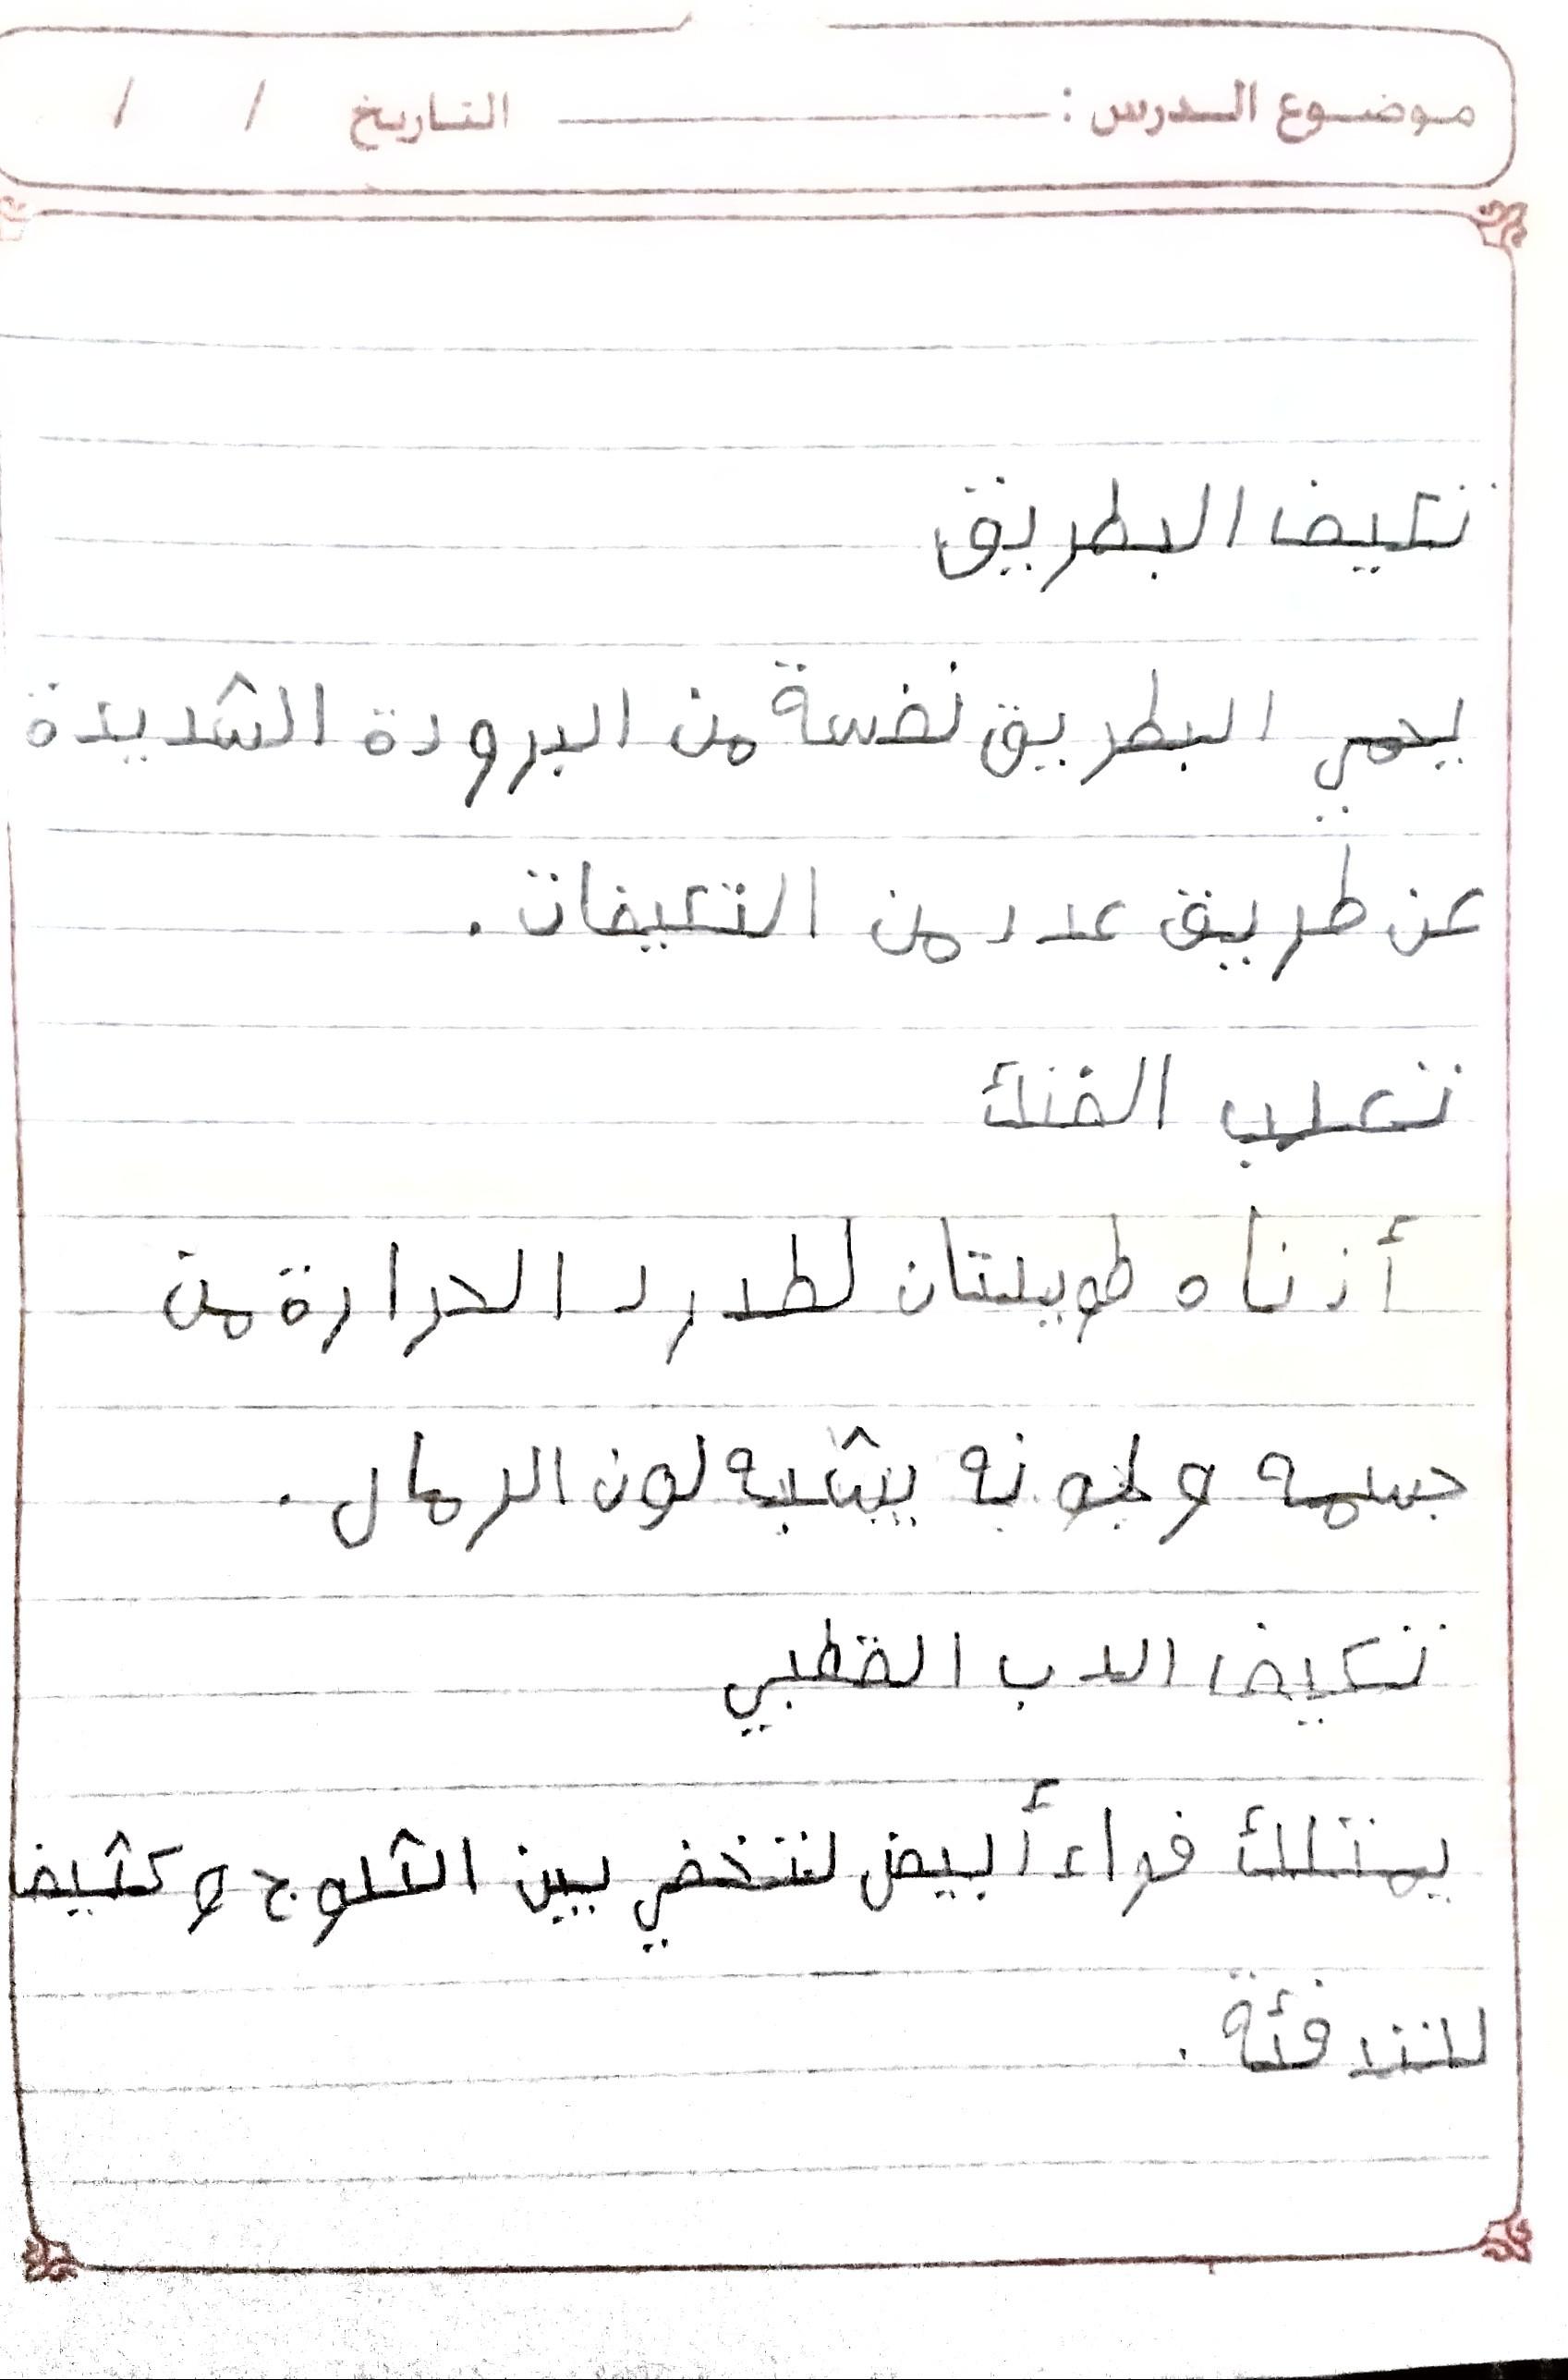 موضوع الدرس : التاريخ / /
تكيف البطريق
يحمي البطريق نفسة من البرودة الشديدة
عن طريق عدد من التكيفات .
تعلب الفنك
أذناه طويلتان لطرد الحرارة من
جسمه ولونه يشبه لون الرمال .
تكيف الدب القطبي
يمتلك فراء أبيض لتخفي بين الثلوج وكثيف
للتدفئة .